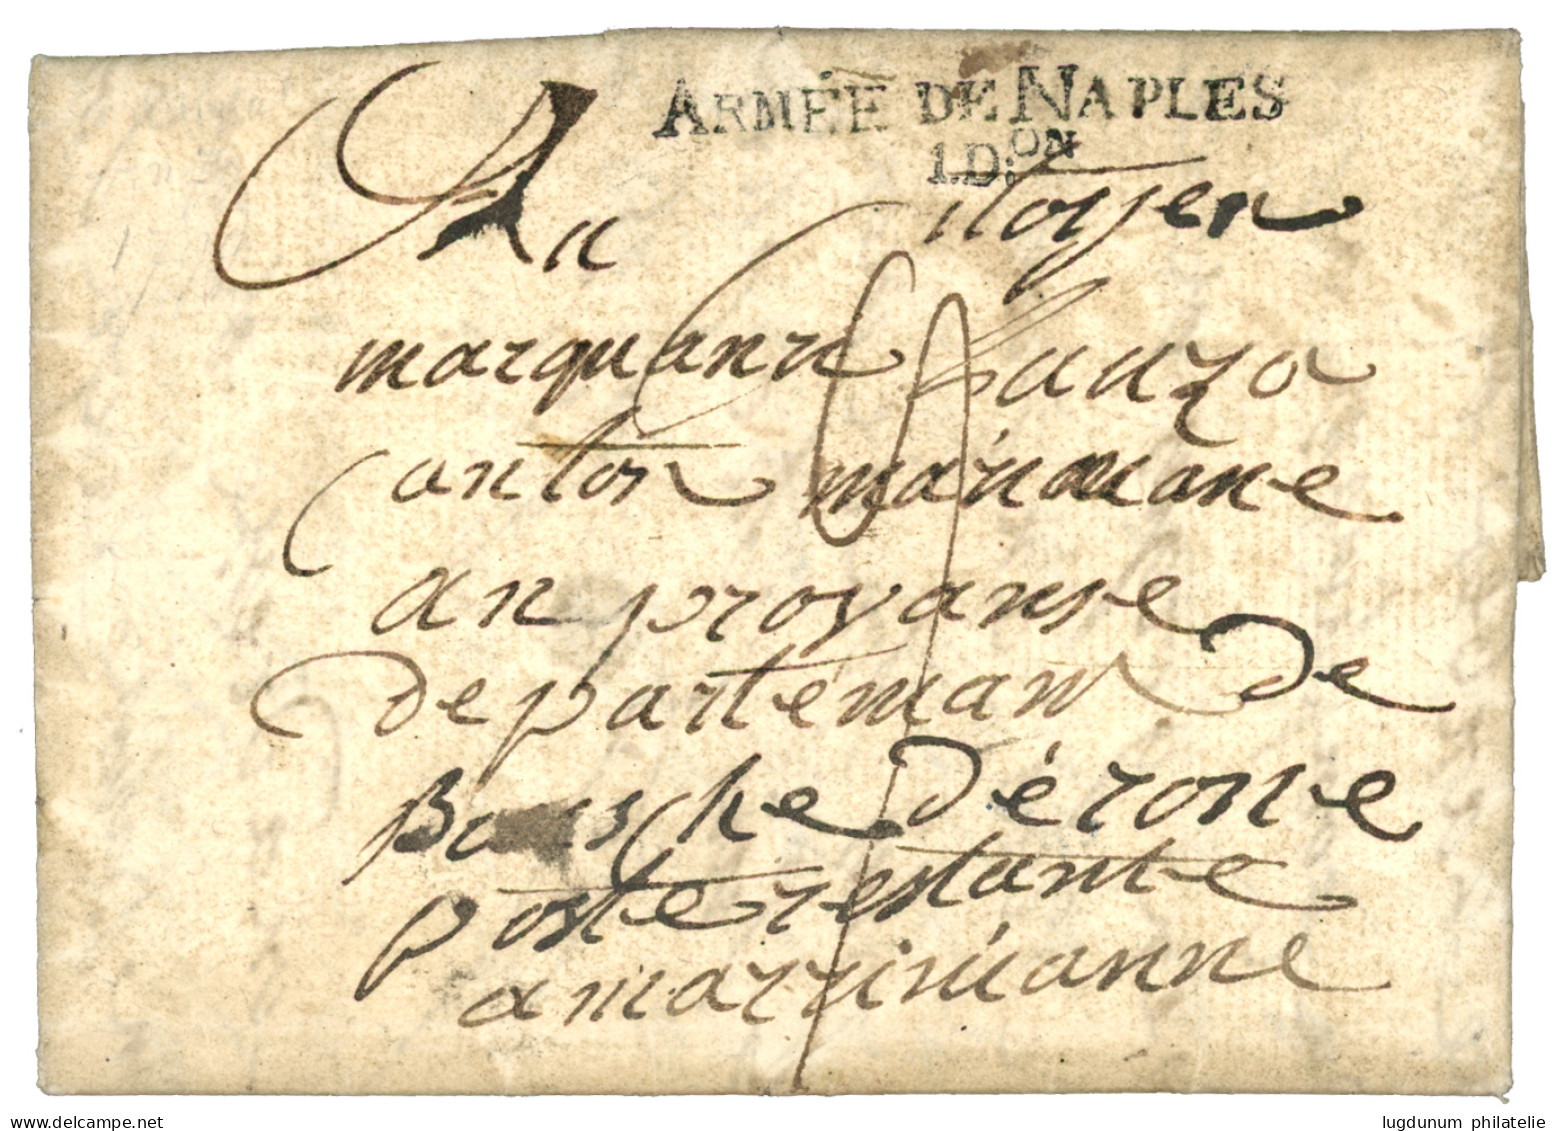 ARMÉE DE NAPLES
1.D:ON
Au Citoyen
marquant
Canton
an provanse
departeman de
Bousche dérone
poste restante
a marrinianne
delcampe.net
lugdunum philatelie